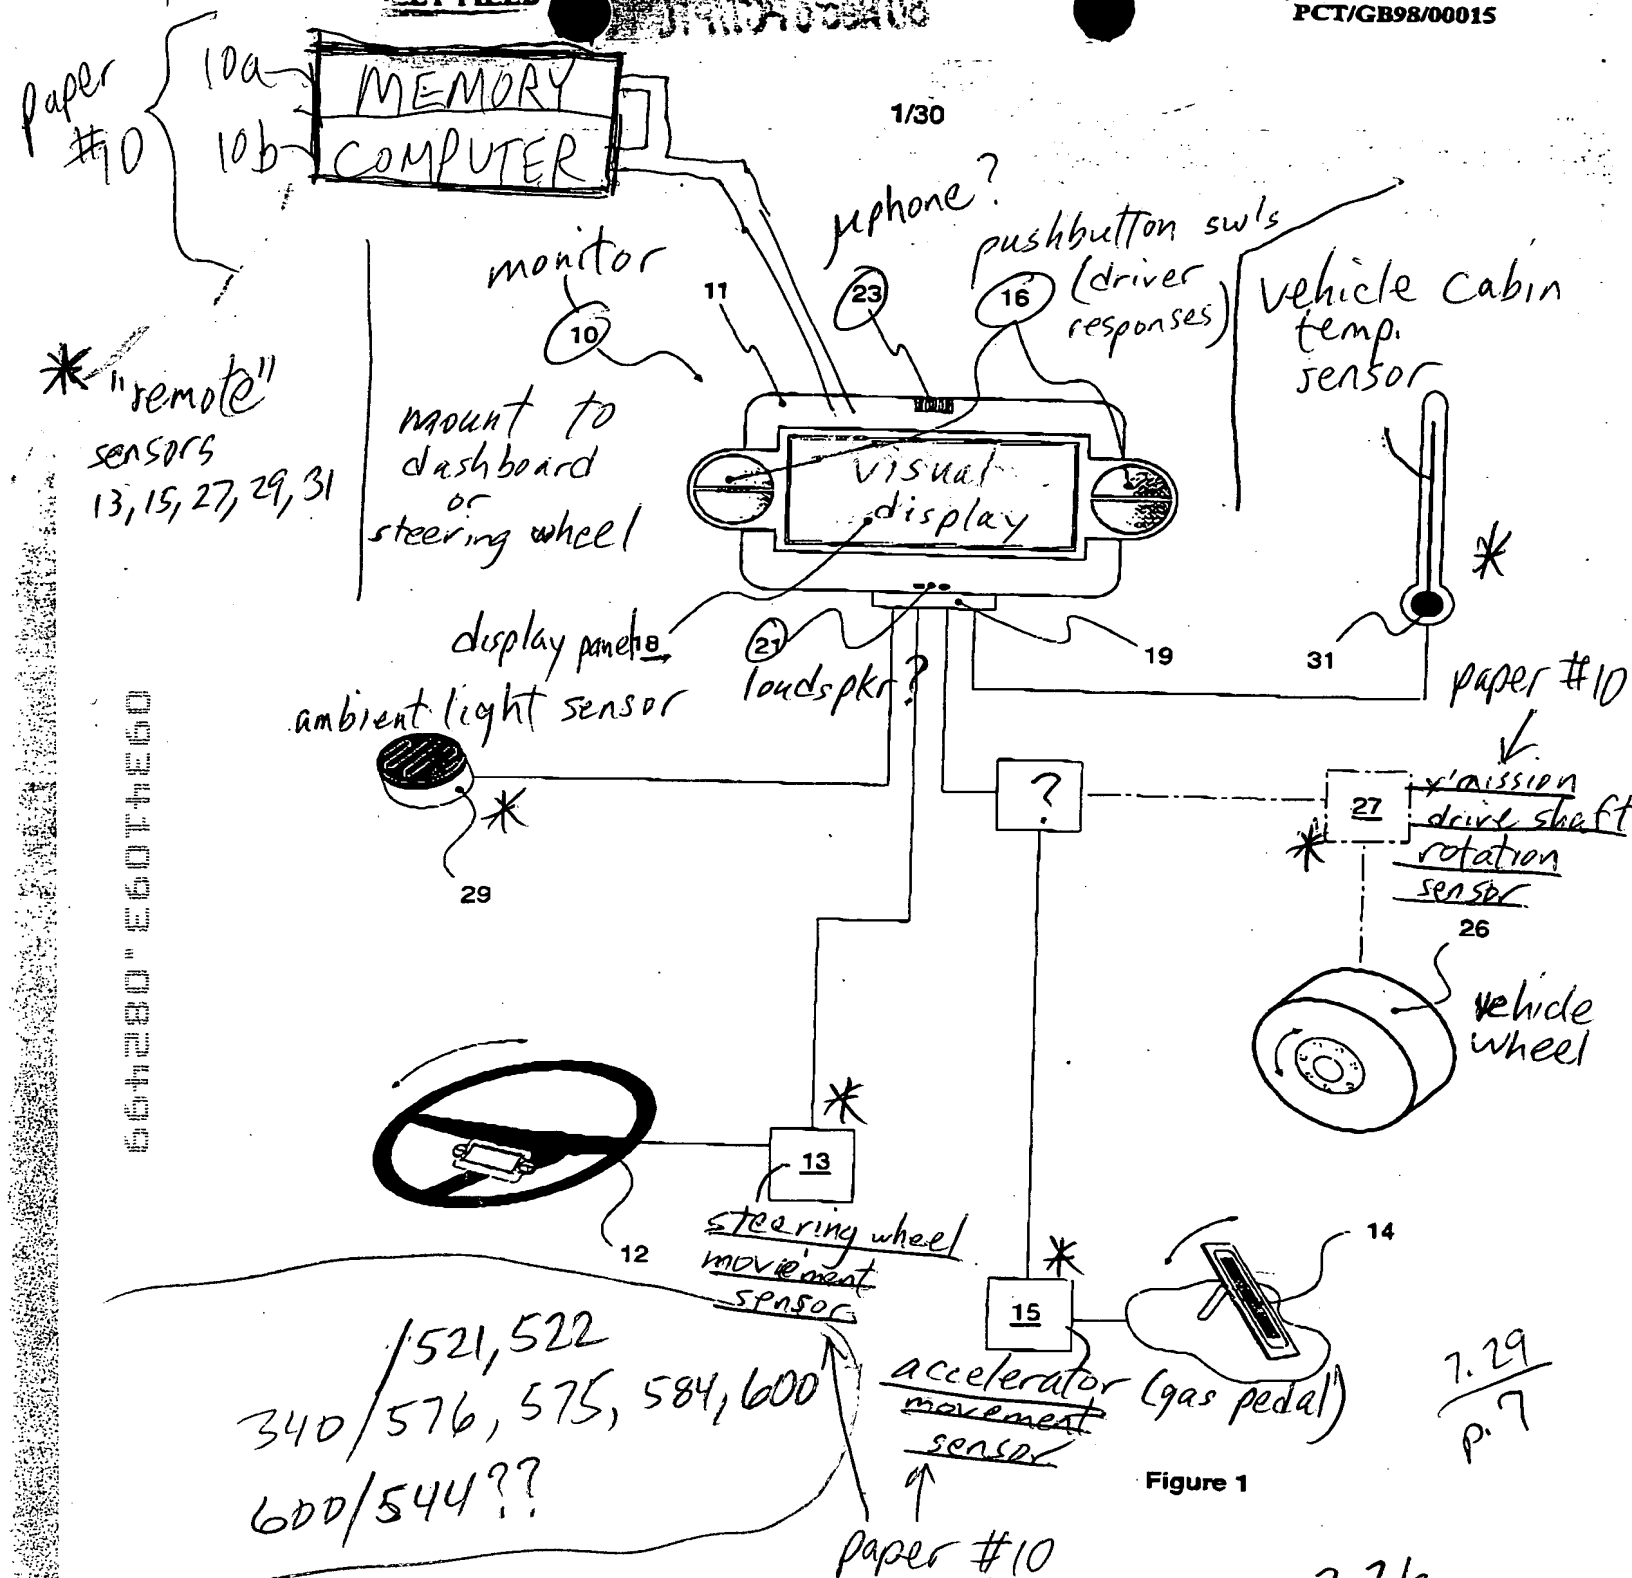 PCT/GB98/00015
1/30
paper
#10
10a
MEMORY
10b
COMPUTER
μphone?
pushbutton sw's
(driver
responses)
vehicle cabin
temp.
sensor
monitor
10
11
23
16
* "remote"
sensors
13, 15, 27, 29, 31
mount to
dashboard
or
steering wheel
visual
display
*
display panel 18
21
loudspkr?
19
31
paper #10
ambient light sensor
*
29
?
27
*
x'mission
drive shaft
rotation
sensor
26
vehicle
wheel
09341093.082499
*
13
12
steering wheel
movement
sensor
*
15
14
accelerator (gas pedal)
movement
sensor
/521, 522
340/576, 575, 584, 600
600/544??
p. 7
Figure 1
paper #10